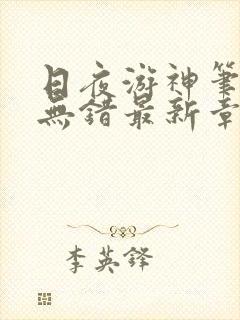 日夜游神筆
無錯最新章
李英鋒